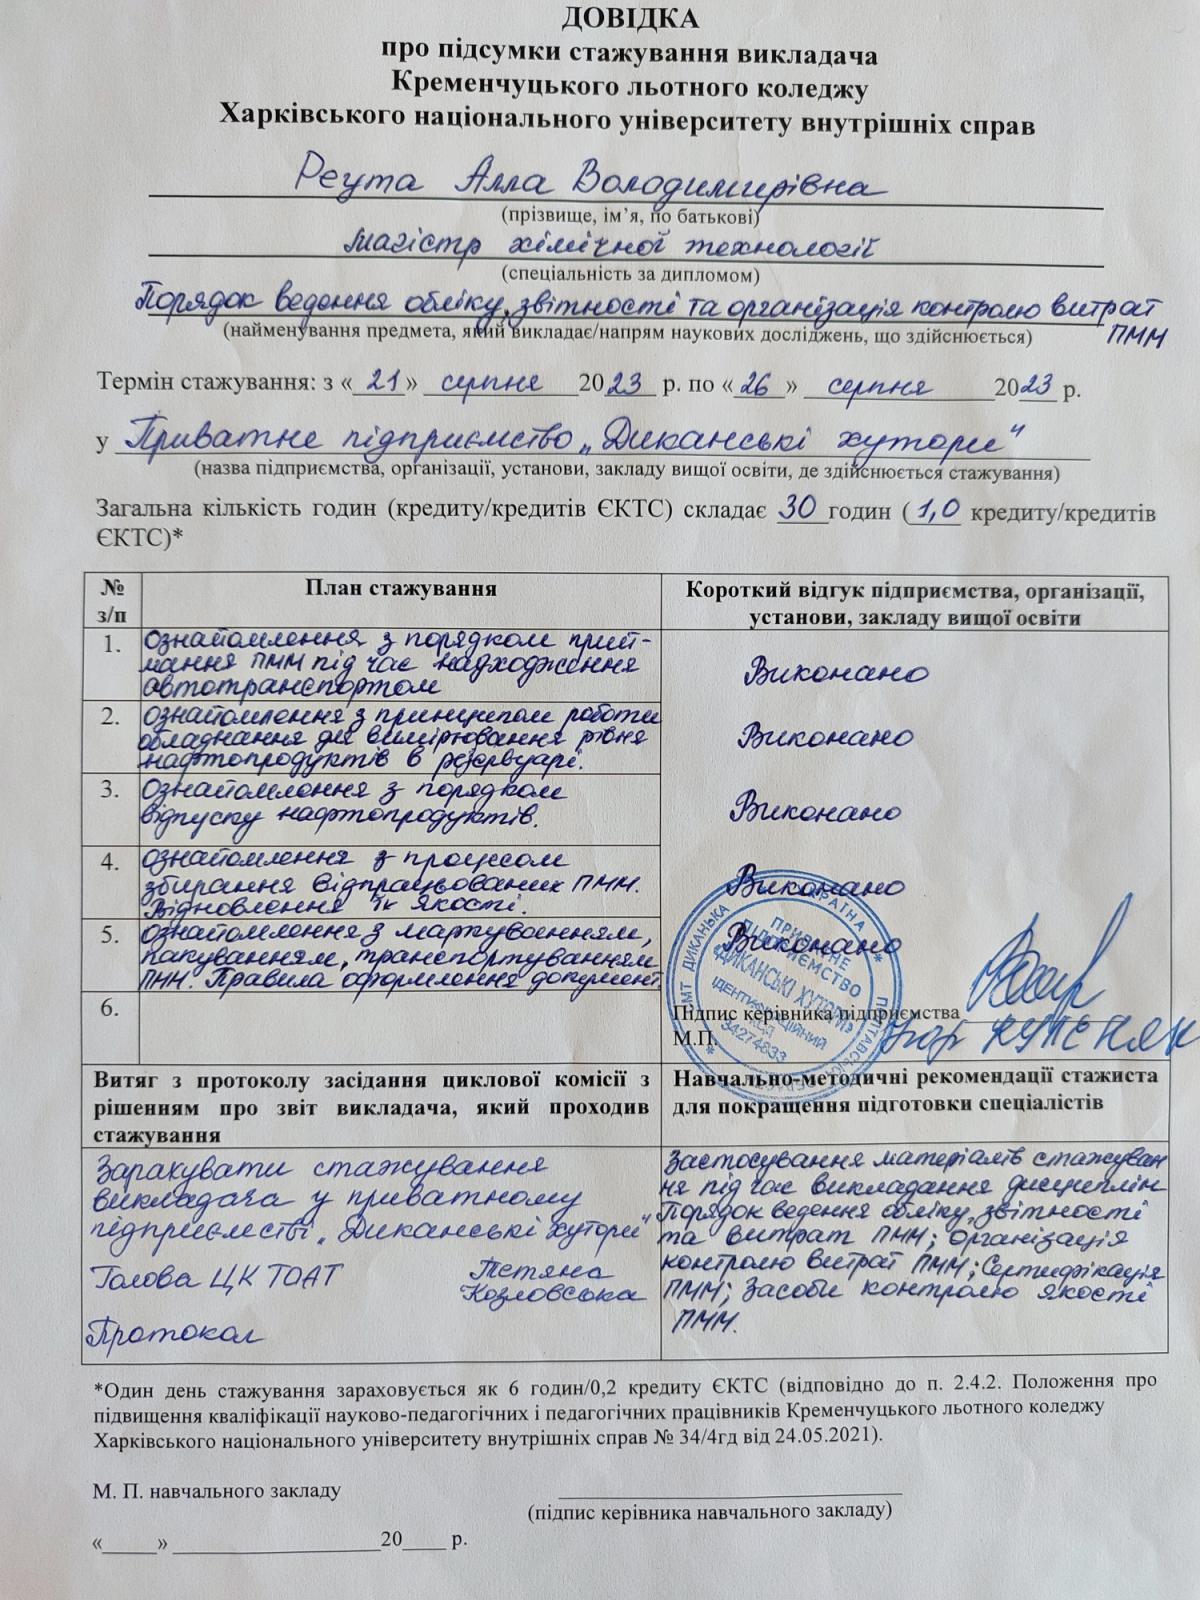 ДОВІДКА
про підсумки стажування викладача
Кременчуцького льотного коледжу
Харківського національного університету внутрішніх справ
Реута Алла Володимирівна
(прізвище, ім’я, по батькові)
Магістр хімічної технології
(спеціальність за дипломом)
Порядок ведення обліку, звітності та організація контролю витрат
ПММ
(найменування предмета, який викладає/напрям наукових досліджень, що здійснюється)
Термін стажування: з «21» серпня 2023 р. по «26» серпня 2023 р.
у Приватне підприємство „Диканські хутори"
(назва підприємства, організації, установи, закладу вищої освіти, де здійснюється стажування)
Загальна кількість годин (кредиту/кредитів ЄКТС) складає 30 годин (1,0 кредиту/кредитів
ЄКТС)*
№ з/п План стажування Короткий відгук підприємства, організації,
установи, закладу вищої освіти
1. Ознайомлення з порядком прий-
мання ПММ під час надходження
автотранспортом
Виконано
2. Ознайомлення з принципом роботи
обладнання для вимірювання рівня
нафтопродуктів в резервуарі.
Виконано
3. Ознайомлення з порядком
відпуску нафтопродуктів.
Виконано
4. Ознайомлення з процесом
збирання відпрацьованих ПММ.
Відновлення їх якості.
Виконано
5. Ознайомлення з маркуванням,
пакуванням, транспортуванням
ПММ. Правила оформлення документ.
Виконано
6.
УКРАЇНА * ПОЛТАВСЬКА * СМТ ДИКАНЬКА
ПРИВАТНЕ
ПІДПРИЄМСТВО
«ДИКАНСЬКІ ХУТОРИ»
ІДЕНТИФІКАЦІЙНИЙ
КОД
34274833
Підпис керівника підприємства
М.П.
Витяг з протоколу засідання циклової комісії з
рішенням про звіт викладача, який проходив
стажування
Навчально-методичні рекомендації стажиста
для покращення підготовки спеціалістів
Зарахувати стажування
викладача у приватному
підприємстві „Диканські хутори"
Голова ЦК ТОАТ Тетяна
Козловська
Протокол
Застосування матеріалів стажуван
ня під час викладання дисциплін
Порядок ведення обліку, звітності
та витрат ПММ; Організація
контролю витрат ПММ; Сертифікація
ПММ; Засоби контролю якості
ПММ.
*Один день стажування зараховується як 6 годин/0,2 кредиту ЄКТС (відповідно до п. 2.4.2. Положення про
підвищення кваліфікації науково-педагогічних і педагогічних працівників Кременчуцького льотного коледжу
Харківського національного університету внутрішніх справ № 34/4гд від 24.05.2021).
М. П. навчального закладу
(підпис керівника навчального закладу)
«_____» ___________________20____ р.